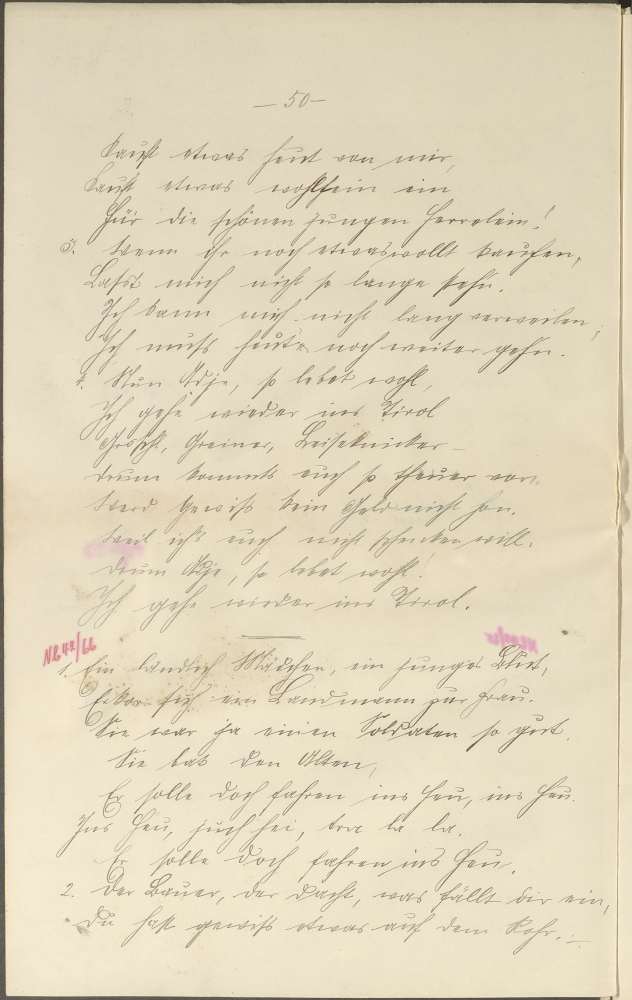 — 50 —
Kauft etwas heut von mir,
Kauft etwas wohlfein ein
Für die schönen jungen Herrelein!
3. Wenn ihr noch etwas wollt kaufen,
Laßt mich nicht so lange stehn.
Ich kann mich nicht lang verweilen,
Ich muß heute noch weiter gehn.
4. Nun Adje, so lebet wohl,
Ich gehe wieder ins Tirol
Greiner,
drum kommts euch so theuer vor.
Werd gewiß kein Geld nicht hon.
Weil ichs euch nicht schenken will.
drum Adje, so lebet wohl!
Ich gehe wieder ins Tirol.
1. Ein ländlich Mädchen, ein junges Blut,
sich ein Landmann zur Frau.
Sie war ja einem Soldaten so gut.
Sie bat den Alten,
Er solle doch fahren ins Heu, ins Heu.
Ins Heu, juchhei, tra la la.
Er solle doch fahren ins Heu.
2. Der Bauer, der dacht, was fällt dir ein,
Du hast gewiß etwas auf dem Rohr.